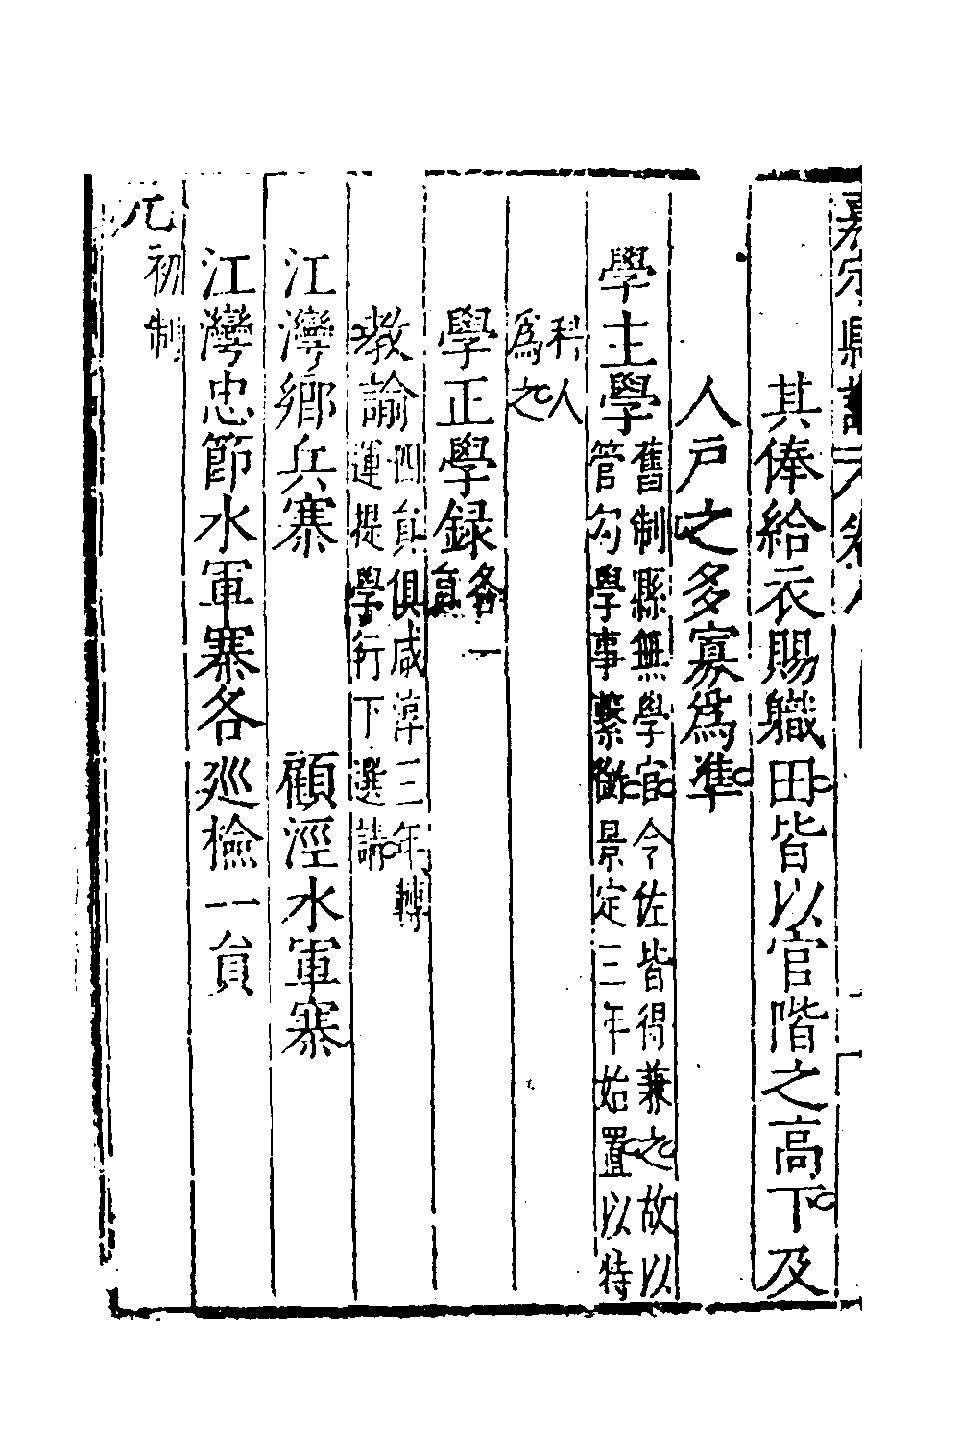 嘉定縣誌卷八
其俸給衣賜職田皆以官階之高下及
人戶之多寡為準
學主學
舊制縣無學官令佐皆得兼之故以
管勾學事繫銜景定三年始置以特
科人
為之
學正學録各一員
教諭四員俱咸淳三年轉
運提學行下選請
江灣鄉兵寨 顧涇水軍寨
江灣忠節水軍寨各廵檢一員
元初制